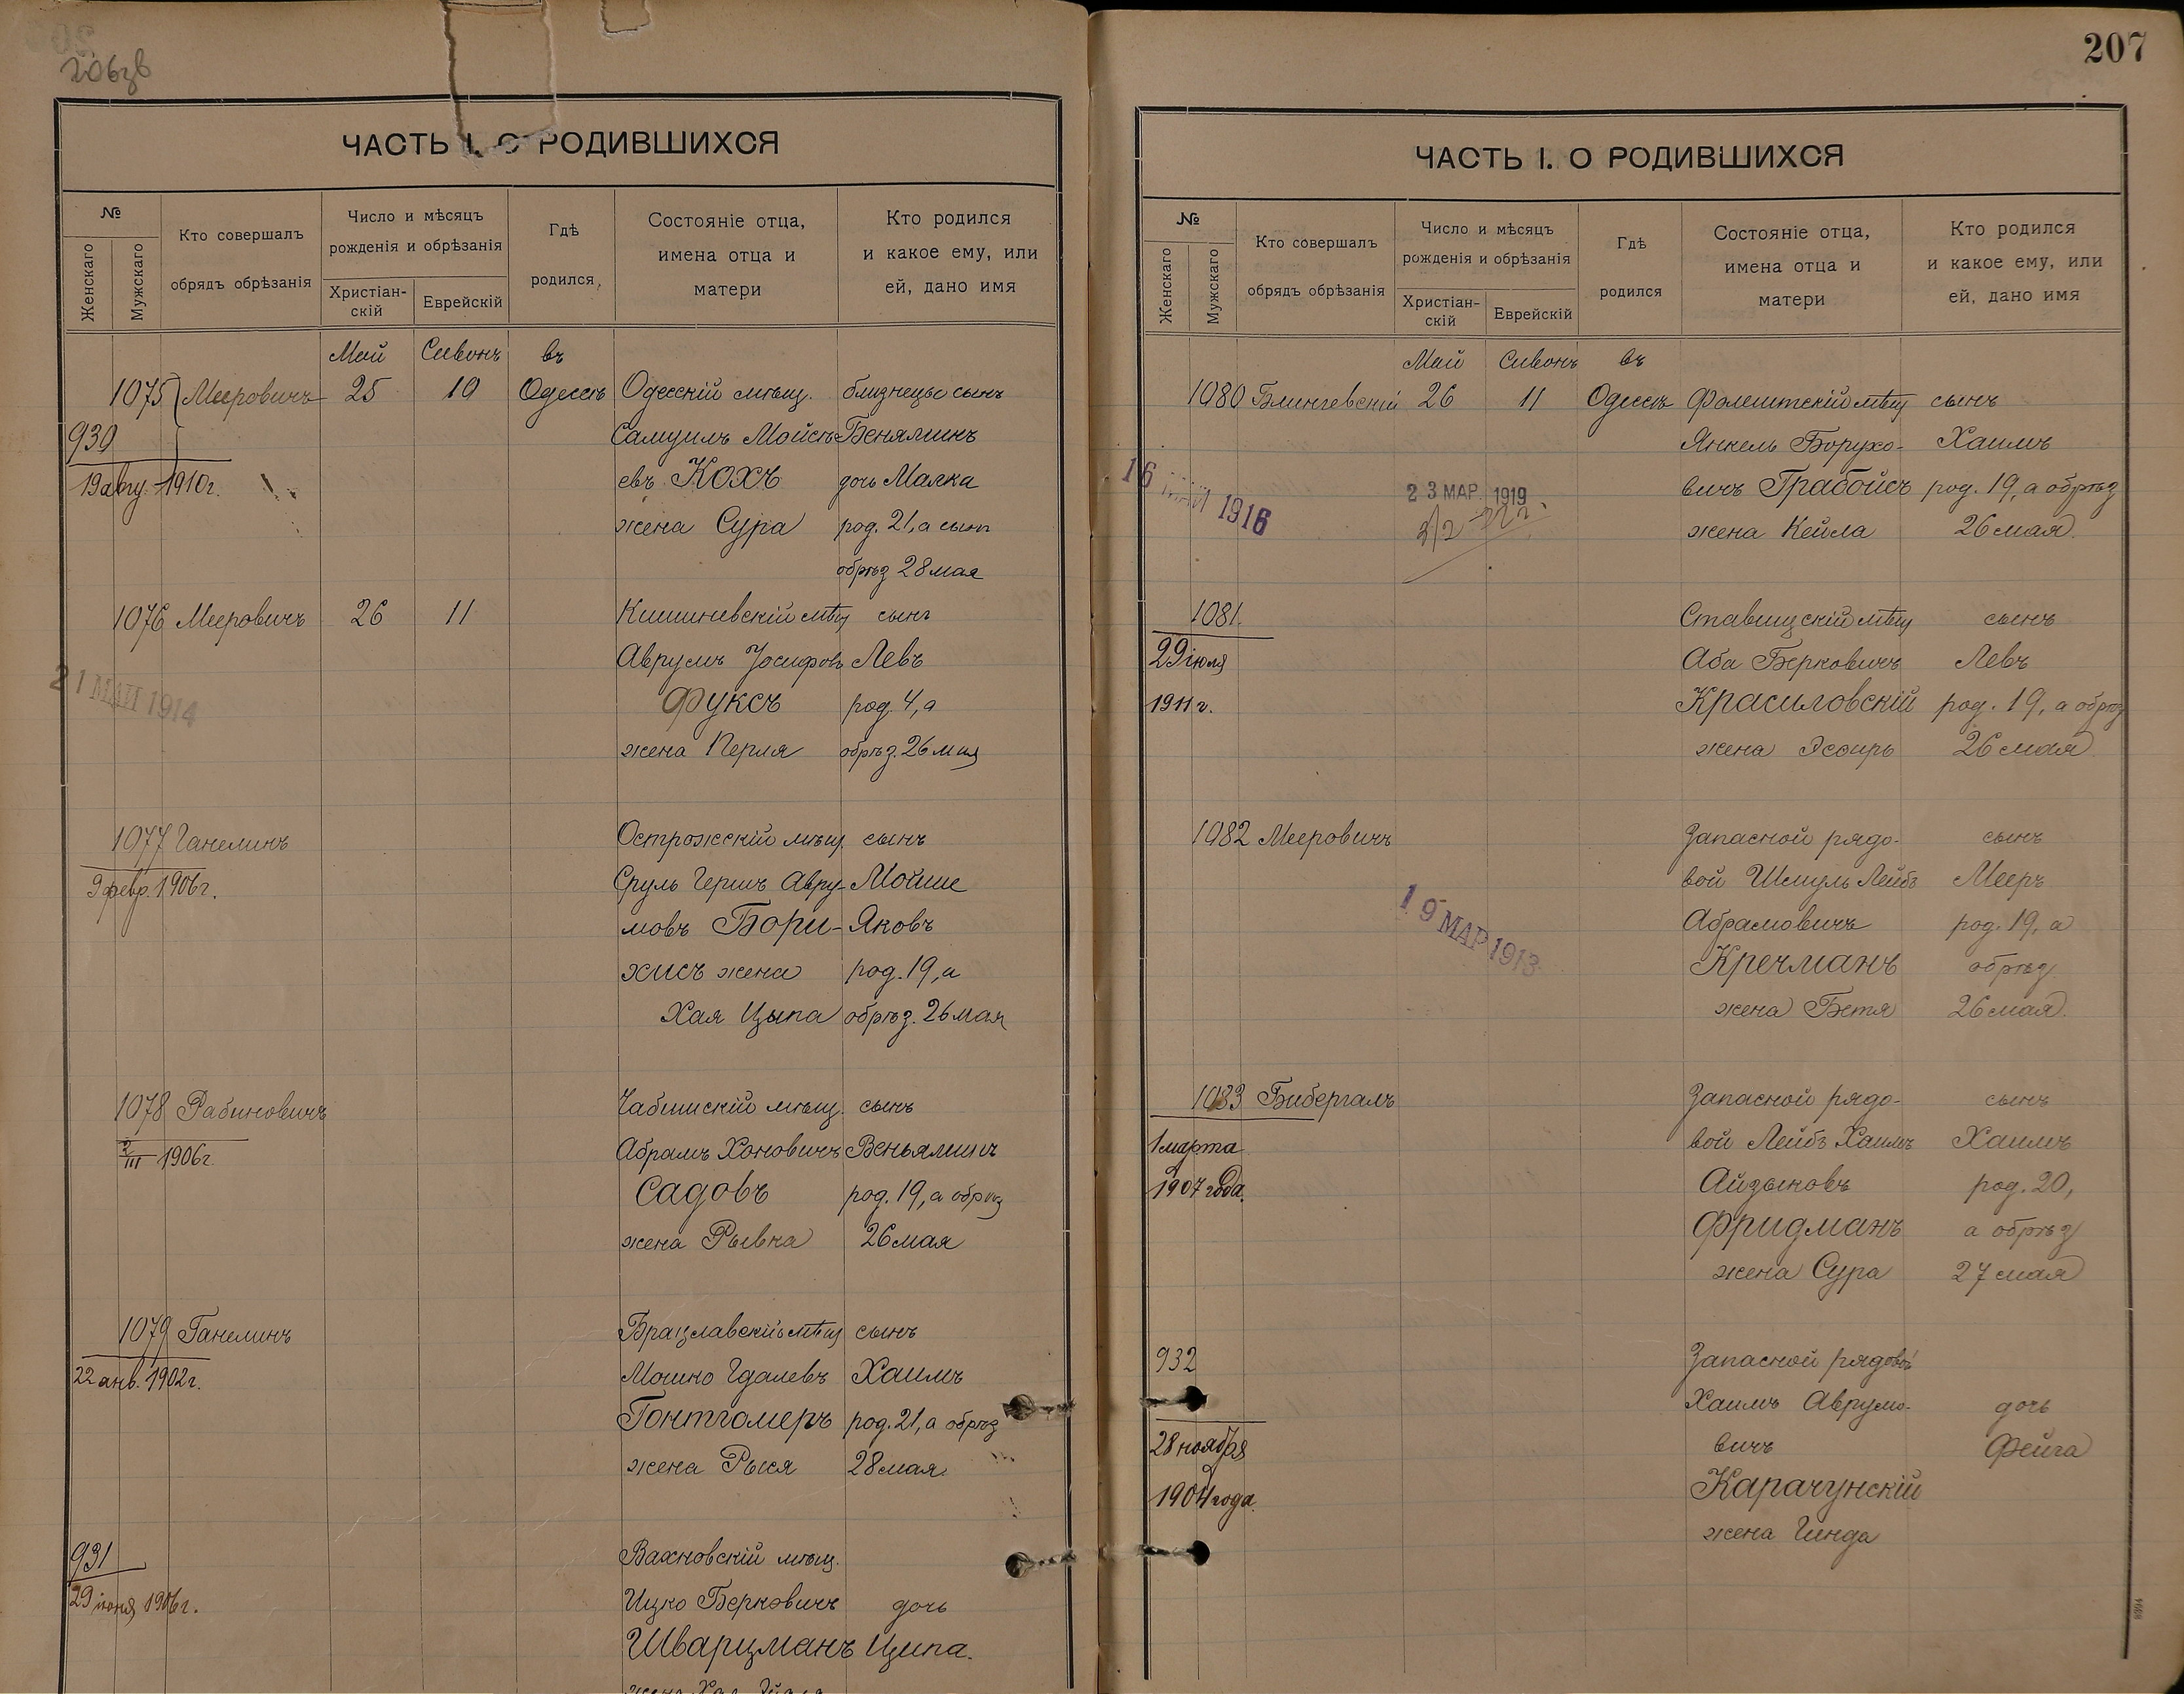 206зв
ЧАСТЬ I. О РОДИВШИХСЯ
№
Женскаго
Мужскаго
Кто совершалъ
обрядъ обрѣзанія
Число и мѣсяцъ
рожденія и обрѣзанія
Христіан-
скій
Еврейскій
Гдѣ
родился
Состояніе отца,
имена отца и
матери
Кто родился
и какое ему, или
ей, дано имя
Май Сивонъ въ
1075 Мееровичъ 25 10 Одессѣ Одесскій мѣщ. близнецы сынъ
930 Самуилъ Мойсѣ- Бенялминъ
19 авгу. 1910г. евъ Кохъ дочь Малка
жена Сура род. 21, а сын
обрѣз 28 мая
1076 Мееровичъ 26 11 Кишиневскій мѣщ сынъ
Аврумъ Іосифовъ Левъ
21 МАЙ 1914 Фуксъ род. 4, а
жена Перля обрѣз. 26 мая
1077 Ганелинъ Острожскій мѣщ. сынъ
9 февр. 1906г. Сруль Гершъ Авру- Мойше
мовъ Бори- Яковъ
хисъ жена род. 19, а
Хая Цыпа обрѣз. 26 мая
1078 Рабиновичъ мѣщ. сынъ
III 1906г. Абрамъ Хоновичъ Веньяминъ
Садовъ род. 19, а обрѣз
жена Рывка 26 мая
1079 Ганелинъ Брацлавскій мѣщ сынъ
22 янв. 1902г. Мошко Гдалевъ Хаимъ
Гонтгомеръ род. 21, а обрѣз
жена Рыся 28 мая.
931 Вахновскій мѣщ.
29 іюня 1906г. Ицко Берковичъ дочь
Шварцманъ Ципа.
жена Хая
207
ЧАСТЬ I. О РОДИВШИХСЯ
№
Женскаго
Мужскаго
Кто совершалъ
обрядъ обрѣзанія
Число и мѣсяцъ
рожденія и обрѣзанія
Христіан-
скій
Еврейскій
Гдѣ
родился
Состояніе отца,
имена отца и
матери
Кто родился
и какое ему, или
ей, дано имя
Май Сивонъ въ
1080 Блингевскій 26 11 Одессѣ Фалештскій мѣщ сынъ
Янкель Борухо- Хаимъ
16 МАЙ 1916 23 МАР. 1919 вичъ Грабойсъ род. 19, а обрѣз
жена Кейла 26 мая.
1081. Ставищскій мѣщ сынъ
29 іюля Аба Берковичъ Левъ
1911 г. Красиловскій род. 19, а обрѣз
жена Эсѳирь 26 мая
1082 Мееровичъ Запасной рядо- сынъ
вой Шмуль Лейбъ Мееръ
19 МАР 1913 Абрамовичъ род. 19, а
Кречманъ обрѣз
жена Бетя 26 мая.
1083 Бибергалъ Запасной рядо- сынъ
1 марта вой Лейбъ Хаимъ Хаимъ
1907 года. Айзыковъ род. 20,
Фридманъ а обрѣз
жена Сура 27 мая
932 Запасной рядовой
Хаимъ Аврумо- дочь
28 ноября вичъ Фейга
1904 года. Карачунскій
жена Гинда
8394